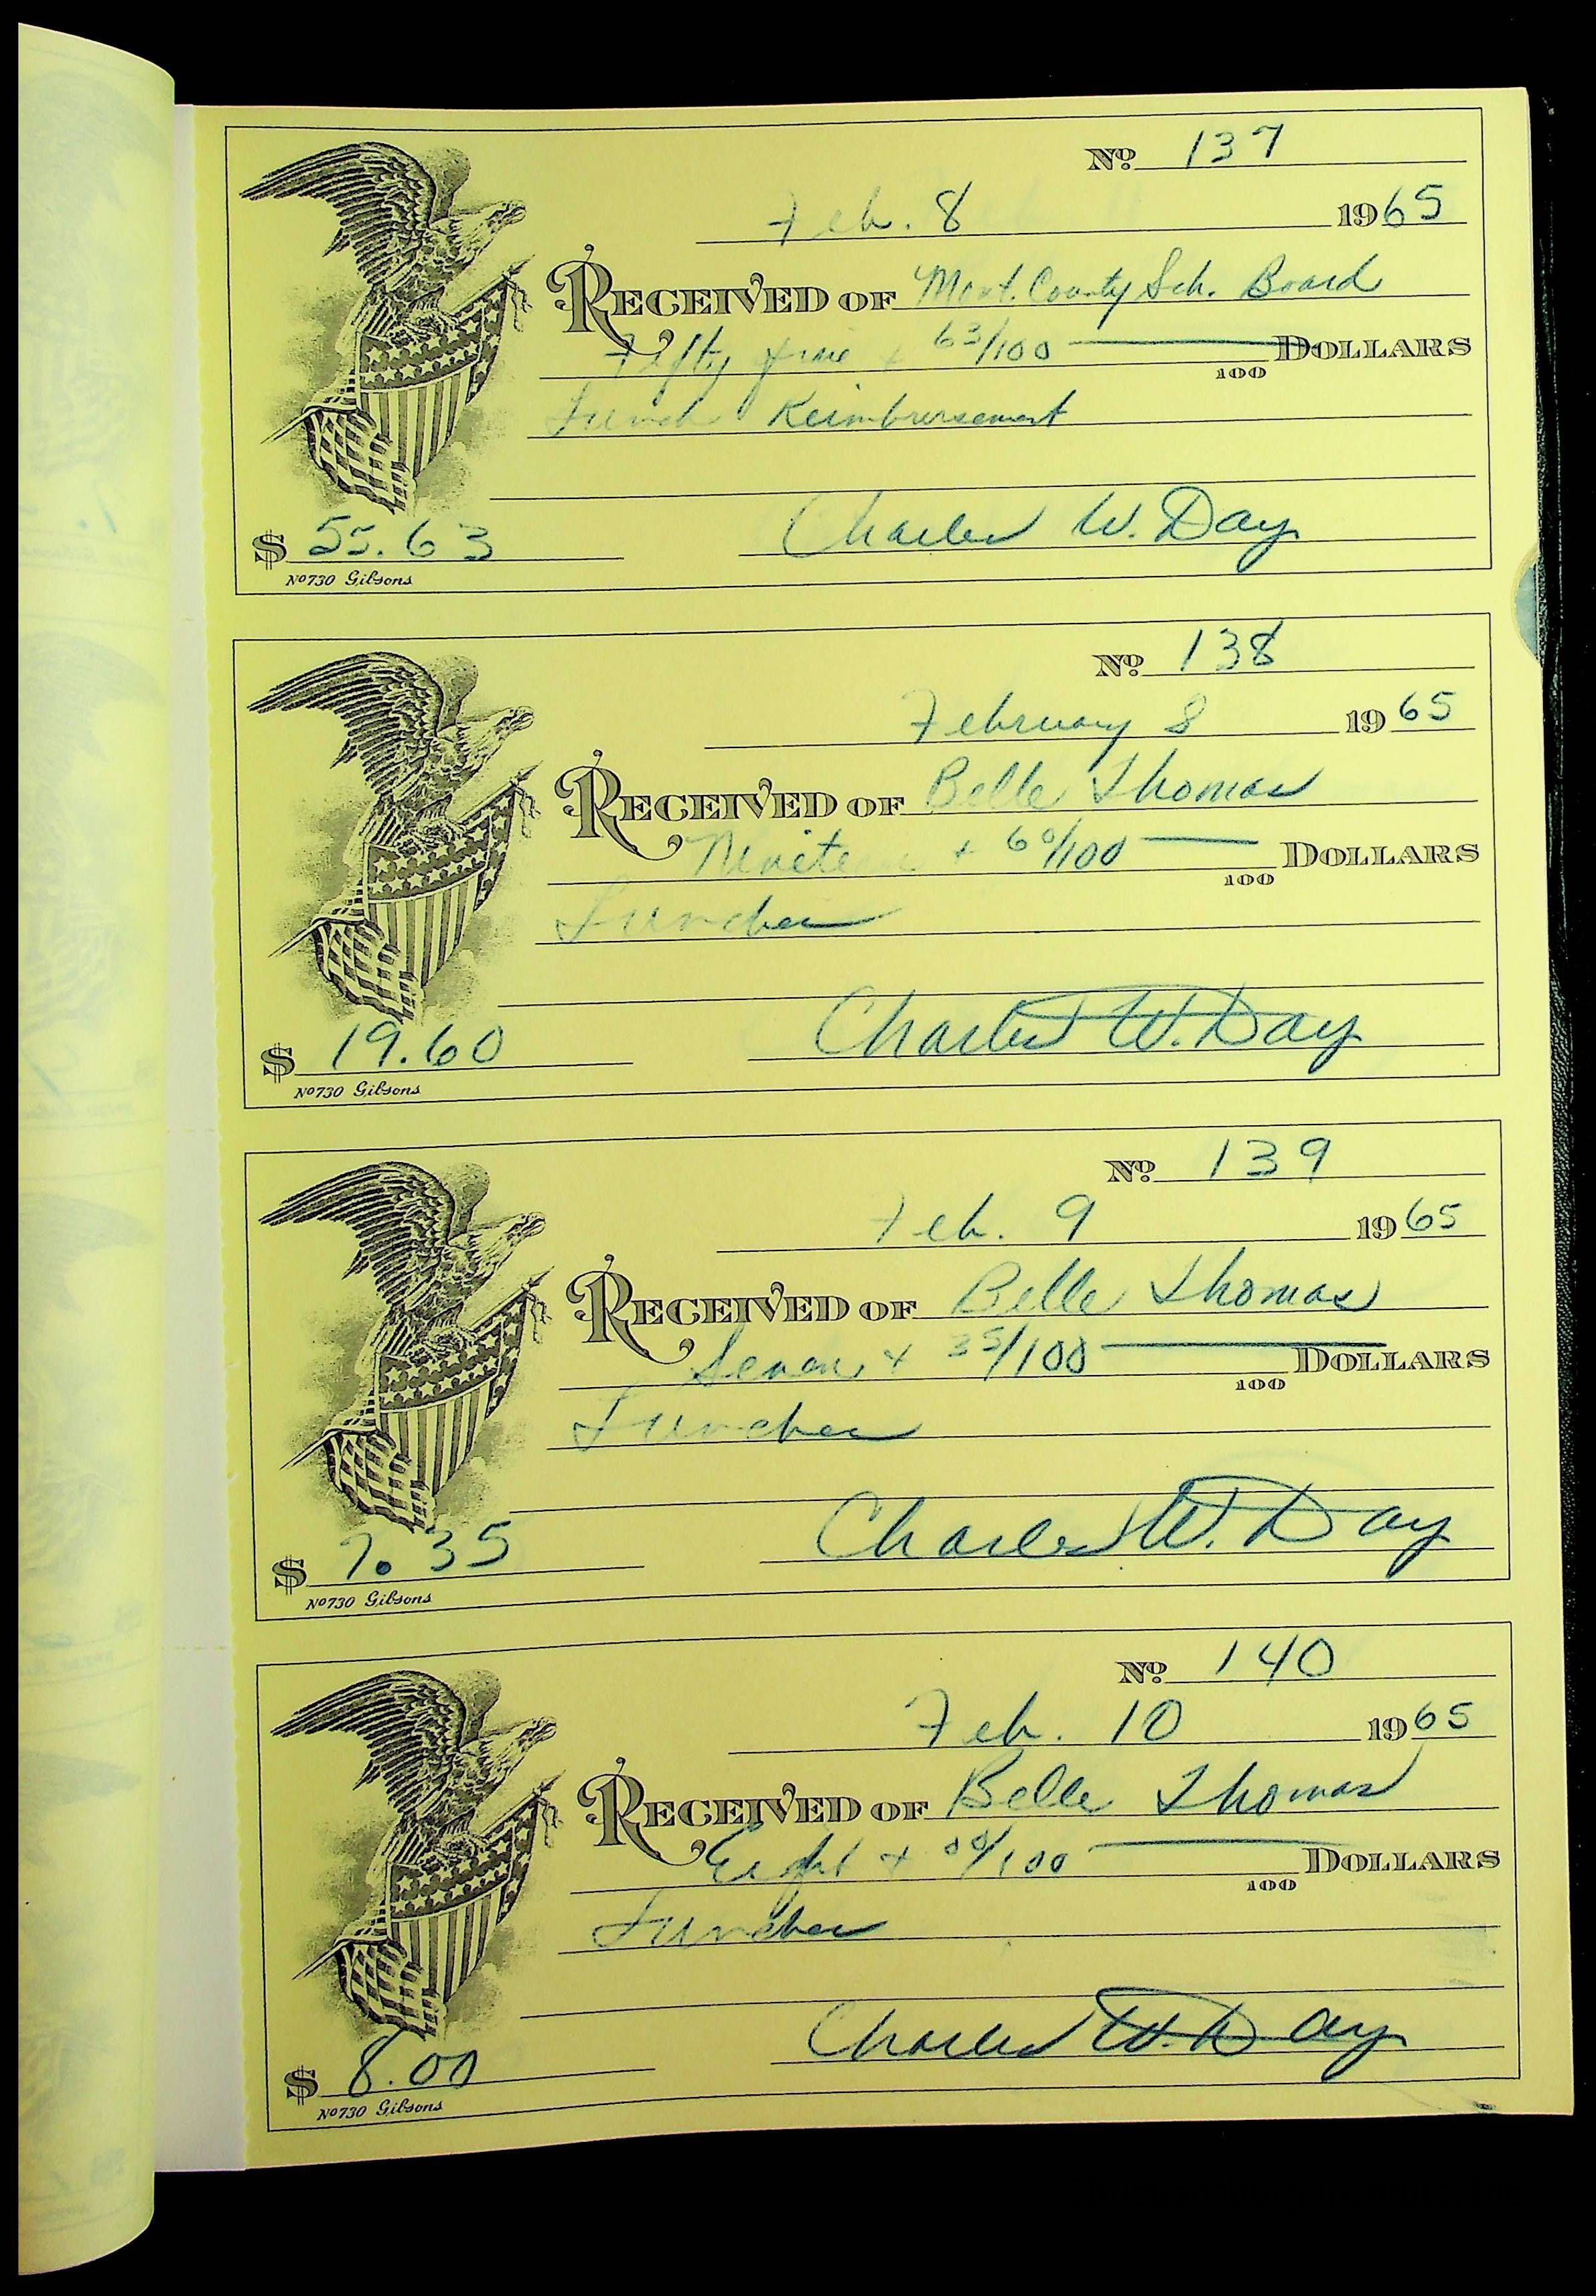 No. 137
Feb. 8 1965
RECEIVED OF Mont. County Sch. Board
Fifty five + 63/100 DOLLARS
100
Lunch Reimbursement
Charles W. Day
$ 55.63
No 730 Gibsons
No. 138
February 8 1965
RECEIVED OF Belle Thomas
Nineteen + 60/100 DOLLARS
100
Lunches
Charles W. Day
$ 19.60
No 730 Gibsons
No. 139
Feb. 9 1965
RECEIVED OF Belle Thomas
Seven + 35/100 DOLLARS
100
Lunches
Charles W. Day
$ 7.35
No 730 Gibsons
No. 140
Feb. 10 1965
RECEIVED OF Belle Thomas
Eight + 00/100 DOLLARS
100
Lunches
Charles W. Day
$ 8.00
No 730 Gibsons